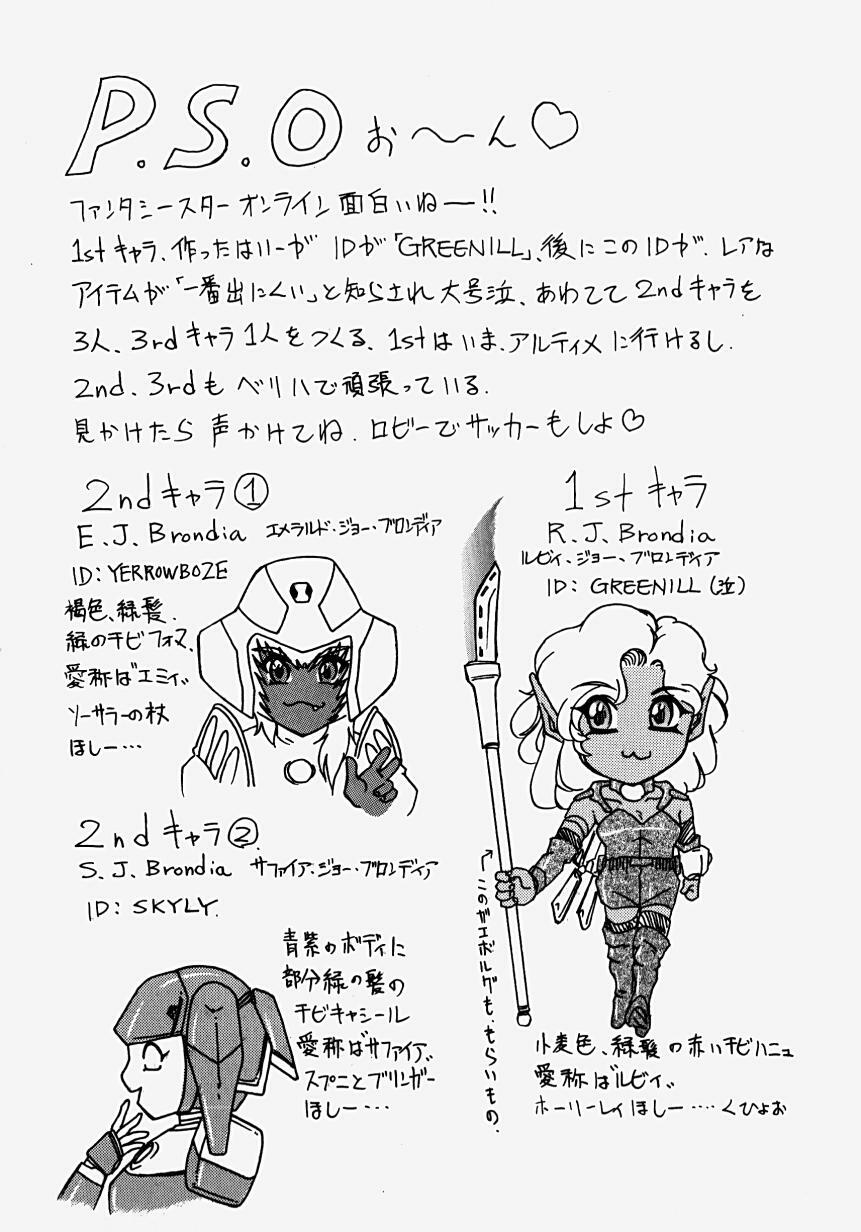 P.S.O お〜ん♡
ファンタシースター オンライン 面白いねー!!
1stキャラ、作ったはいーが IDが「GREENILL」、後にこのIDが、レアな
アイテムが「一番出にくい」と知らされ大号泣、あわてて2ndキャラを
3人、3rdキャラ1人をつくる、1stはいま、アルティメに行けるし、
2nd、3rdも ベリハで頑張っている、
見かけたら 声かけてね、ロビーでサッカーもしよ♡
2ndキャラ①
E.J.Brondia エメラルド・ジョー・ブロンディア
ID: YERROWBOZE
褐色、緑髪、
緑のチビフォマ、
愛称は"エミィ"
ソーサラーの杖
ほしー…
1stキャラ
R.J.Brondia
ルビィ・ジョー・ブロンディア
ID: GREENILL(泣)
このガエボルグも、もらいもの、
小麦色、緑髪の赤いチビハニュ
愛称は"ルビィ"
ホーリーレイほしー‥‥くひょお
2ndキャラ②
S.J.Brondia サファイア・ジョー・ブロンディア
ID: SKYLY.
青紫のボディに
部分緑の髪の
チビキャシール
愛称は"サファイア"
スプニとブリンガー
ほしー…